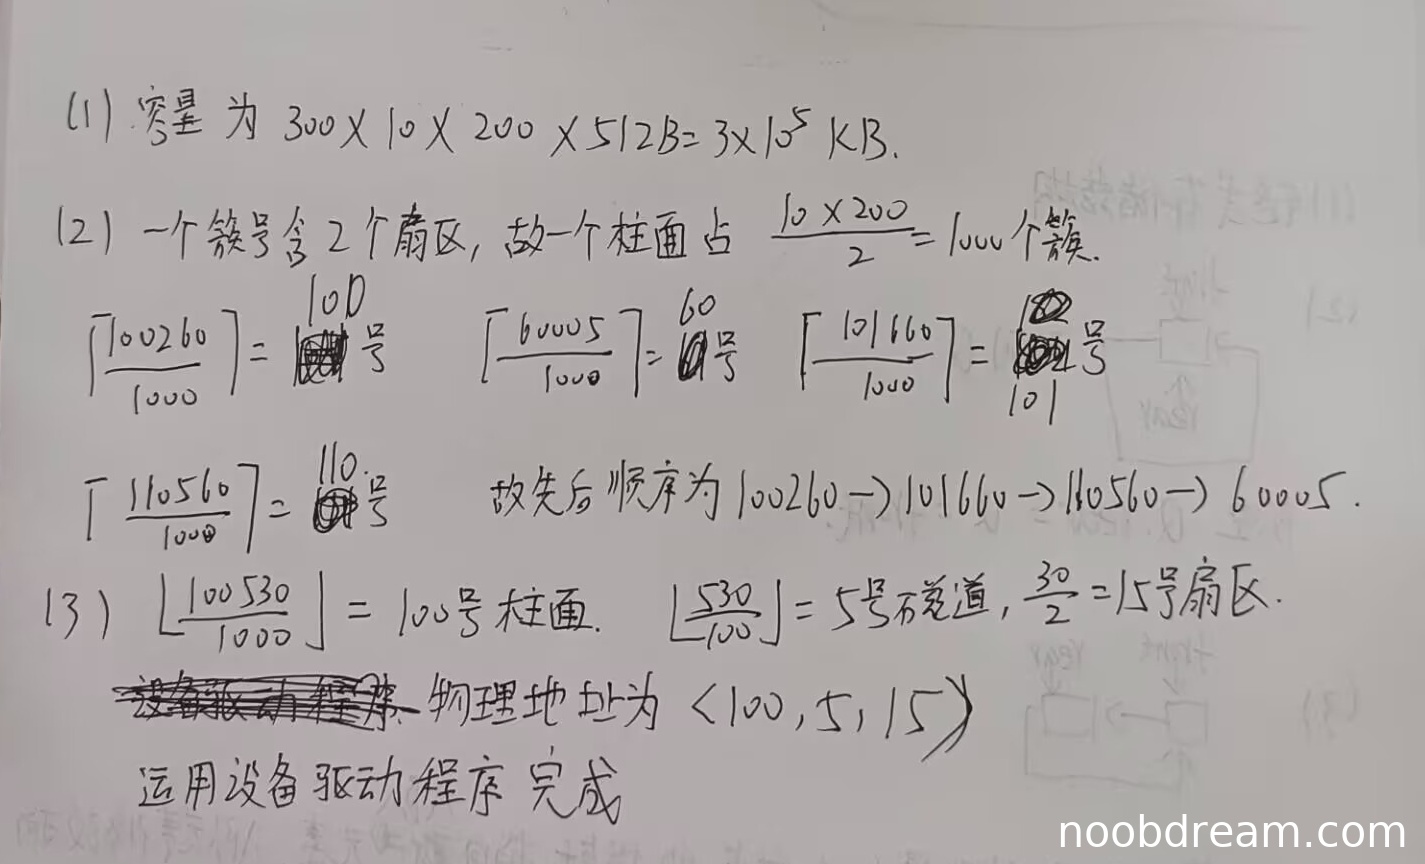 (1) 容量为 300×10×200×512B=3×10⁵ KB.
(2) 一个簇号含2个扇区,故一个柱面占 10×200/2=1000个簇.
⌈100260/1000⌉=100号 ⌈60005/1000⌉=60号 ⌈101660/1000⌉=101号
⌈110560/1000⌉=110.号 故先后顺序为100260→101660→110560→60005.
(3) ⌊100530/1000⌋=100号柱面. ⌊530/100⌋=5号磁道,30/2=15号扇区.
物理地址为<100,5,15>
运用设备驱动程序完成
noobdream.com